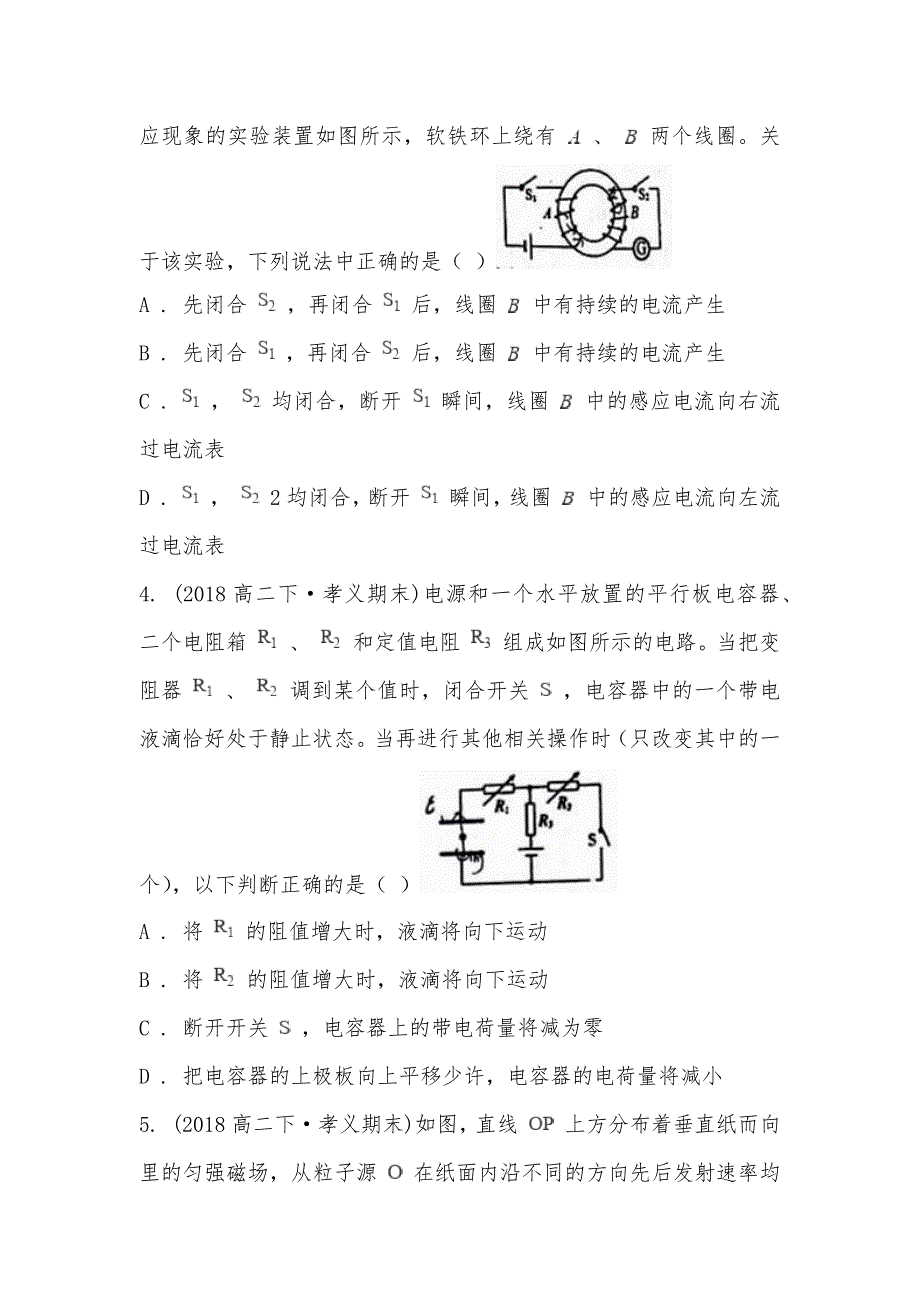 应现象的实验装置如图所示，软铁环上绕有 A 、 B 两个线圈。关
S1 A B S2 G
于该实验，下列说法中正确的是（ ）
A . 先闭合 S2 ，再闭合 S1 后，线圈 B 中有持续的电流产生
B . 先闭合 S1 ，再闭合 S2 后，线圈 B 中有持续的电流产生
C . S1 ， S2 均闭合，断开 S1 瞬间，线圈 B 中的感应电流向右流
过电流表
D . S1 ， S2 2均闭合，断开 S1 瞬间，线圈 B 中的感应电流向左流
过电流表
4. (2018高二下·孝义期末)电源和一个水平放置的平行板电容器、
二个电阻箱 R1 、 R2 和定值电阻 R3 组成如图所示的电路。当把变
阻器 R1 、 R2 调到某个值时，闭合开关 S ，电容器中的一个带电
液滴恰好处于静止状态。当再进行其他相关操作时（只改变其中的一
R1 R2 R3 S
个），以下判断正确的是（ ）
A . 将 R1 的阻值增大时，液滴将向下运动
B . 将 R2 的阻值增大时，液滴将向下运动
C . 断开开关 S ，电容器上的带电荷量将减为零
D . 把电容器的上极板向上平移少许，电容器的电荷量将减小
5. (2018高二下·孝义期末)如图，直线 OP 上方分布着垂直纸而向
里的匀强磁场，从粒子源 O 在纸面内沿不同的方向先后发射速率均